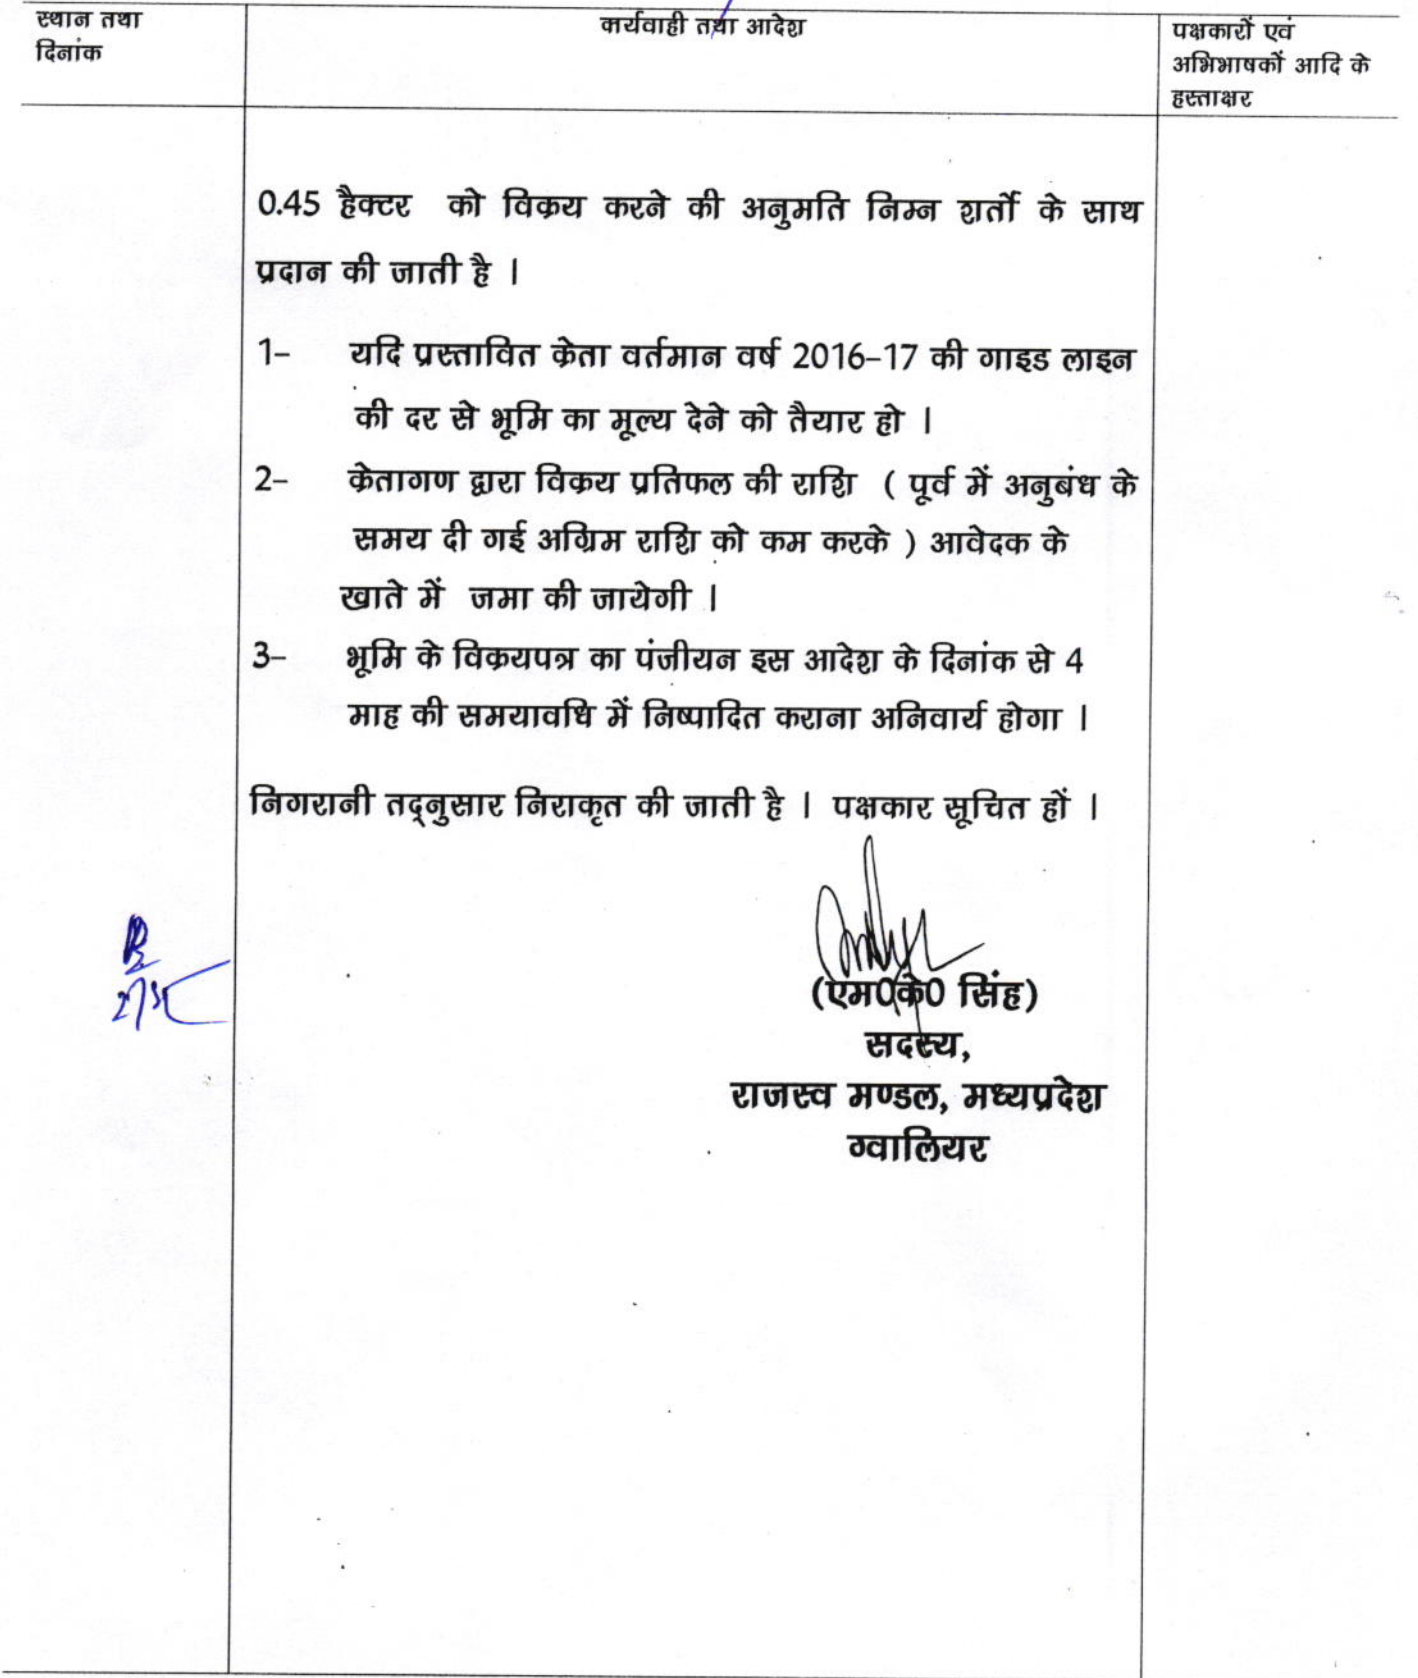 स्थान तथा
दिनांक
कार्यवाही तथा आदेश
पक्षकारों एवं
अभिभाषकों आदि के
हस्ताक्षर
0.45 हैक्टर को विक्रय करने की अनुमति निम्न शर्तो के साथ
प्रदान की जाती है ।
1– यदि प्रस्तावित क्रेता वर्तमान वर्ष 2016–17 की गाइड लाइन
की दर से भूमि का मूल्य देने को तैयार हो ।
2– क्रेतागण द्वारा विक्रय प्रतिफल की राशि ( पूर्व में अनुबंध के
समय दी गई अग्रिम राशि को कम करके ) आवेदक के
खाते में जमा की जायेगी ।
3– भूमि के विक्रयपत्र का पंजीयन इस आदेश के दिनांक से 4
माह की समयावधि में निष्पादित कराना अनिवार्य होगा ।
निगरानी तद्नुसार निराकृत की जाती है । पक्षकार सूचित हों ।
(एम0के0 सिंह)
सदस्य,
राजस्व मण्डल, मध्यप्रदेश
ग्वालियर